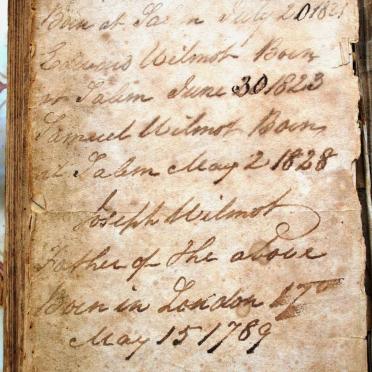 Born at Salem July 20 1821
Edward Wilmot Born
at Salem June 30 1823
Samuel Wilmot Born
at Salem May 2 1828
Joseph Wilmot
Father of the above
Born in London 17
May 15 1789